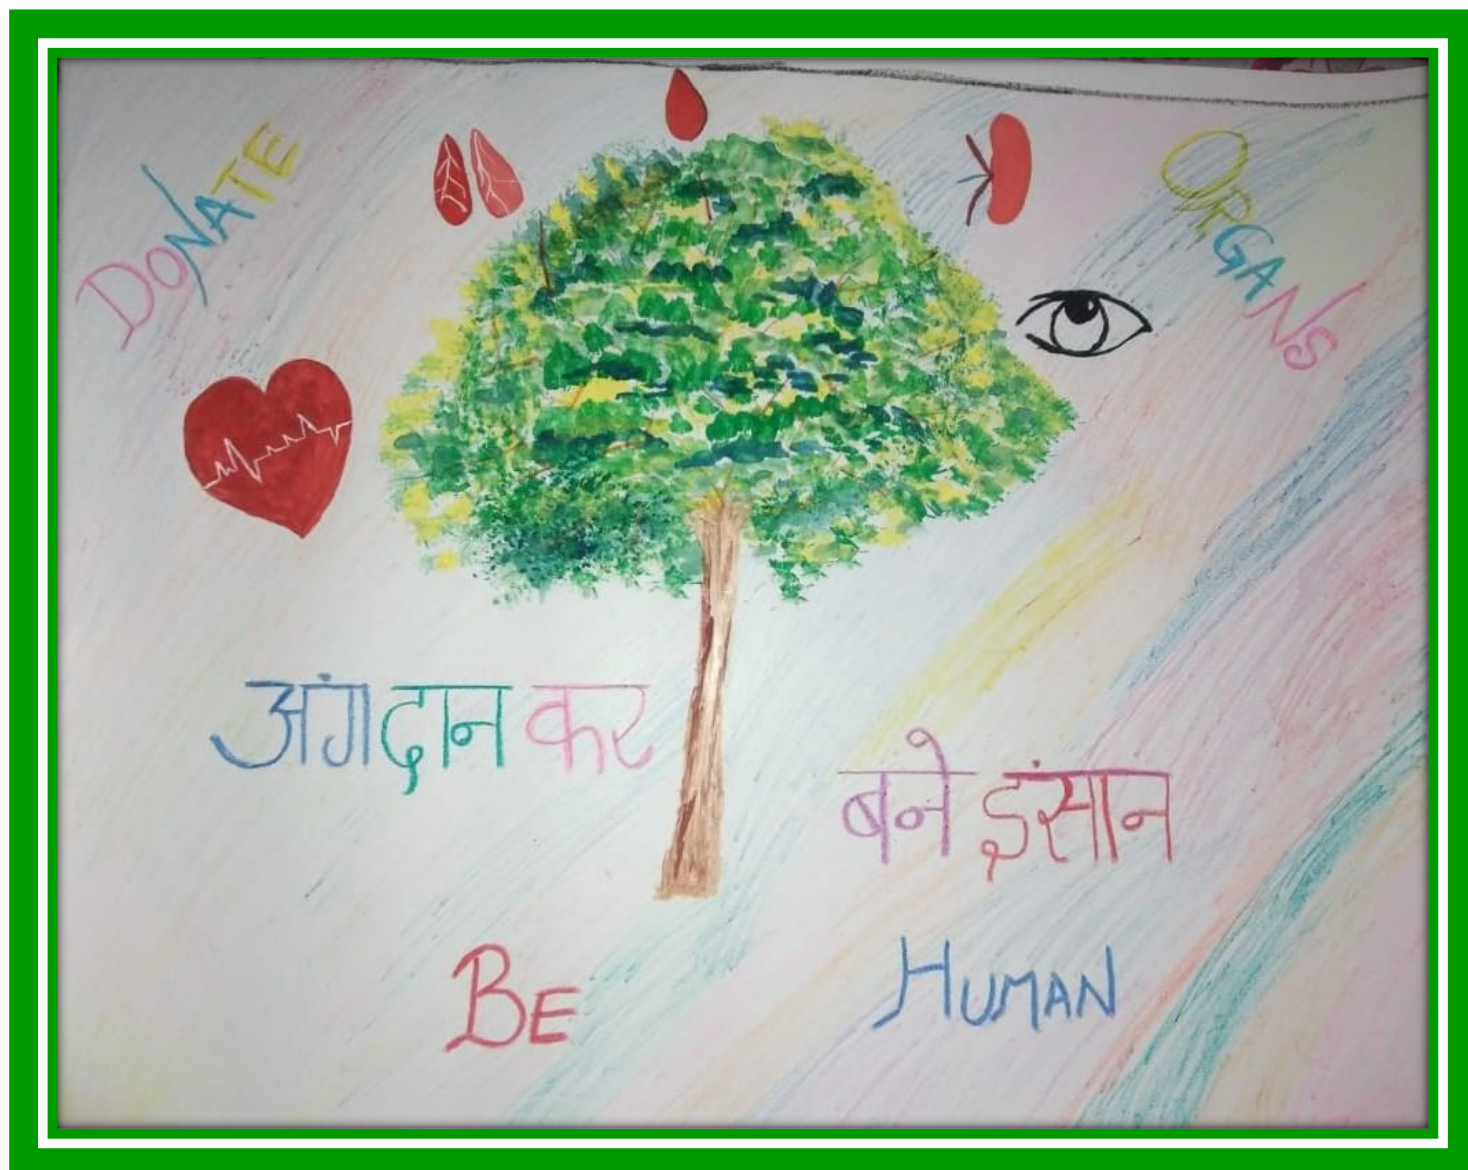 DONATE
ORGANS
अंगदान कर
बने इंसान
BE
HUMAN